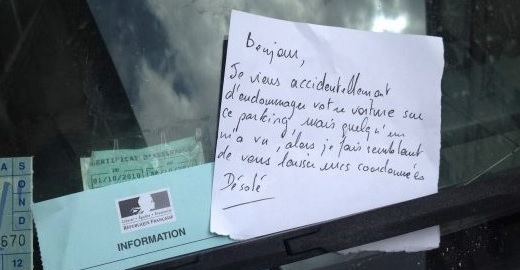 Bonjour,
Je viens accidentellement
d'endommager votre voiture sur
ce parking mais quelqu'un
m'a vu, alors je fais semblant
de vous laisser mes coordonnées
Désolé
CERTIFICAT D'ASSURANCE
01/10/2010
RÉPUBLIQUE FRANÇAISE
INFORMATION
A S
O
N
D
670
12